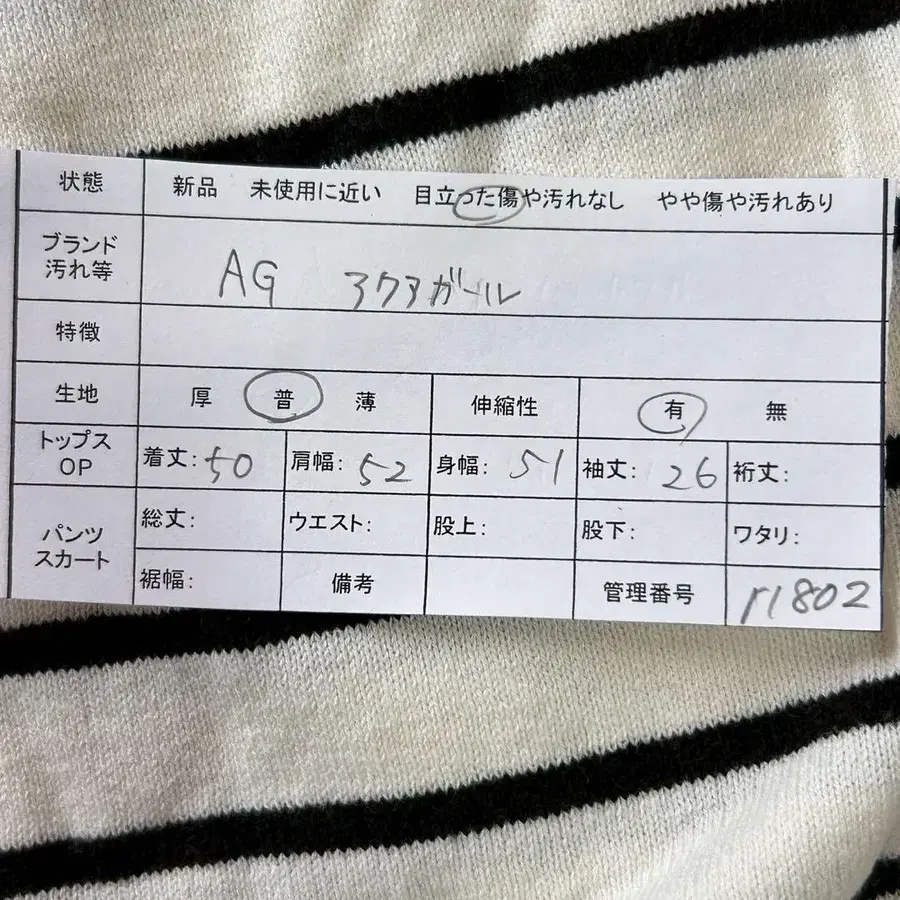 状態 新品 未使用に近い 目立った傷や汚れなし やや傷や汚れあり
ブランド
汚れ等 AG アクアガール
特徴
生地 厚 普 薄 伸縮性 有 無
トップス
OP 着丈:50 肩幅:52 身幅:51 袖丈:26 裄丈:
パンツ
スカート 総丈: ウエスト: 股上: 股下: ワタリ:
裾幅: 備考 管理番号 r1802